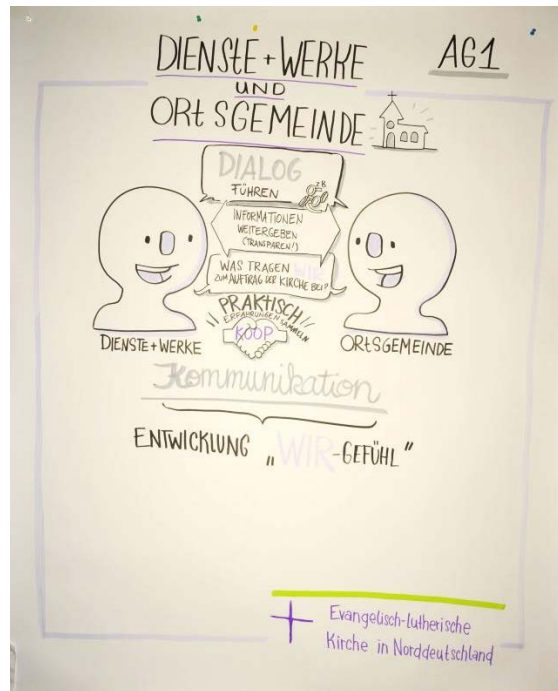 DIENSTE + WERKE
UND
ORTSGEMEINDE
AG1
DIALOG
FÜHREN
z B
INFORMATIONEN
WEITERGEBEN
(TRANSPAREN!)
WAS TRAGEN WIR
ZUM AUFTRAG DER KIRCHE BEI?
PRAKTISCH
ERFAHRUNGEN SAMMELN
KOOP
DIENSTE + WERKE
ORTSGEMEINDE
Kommunikation
ENTWICKLUNG „WIR-GEFÜHL"
Evangelisch-Lutherische
Kirche in Norddeutschland